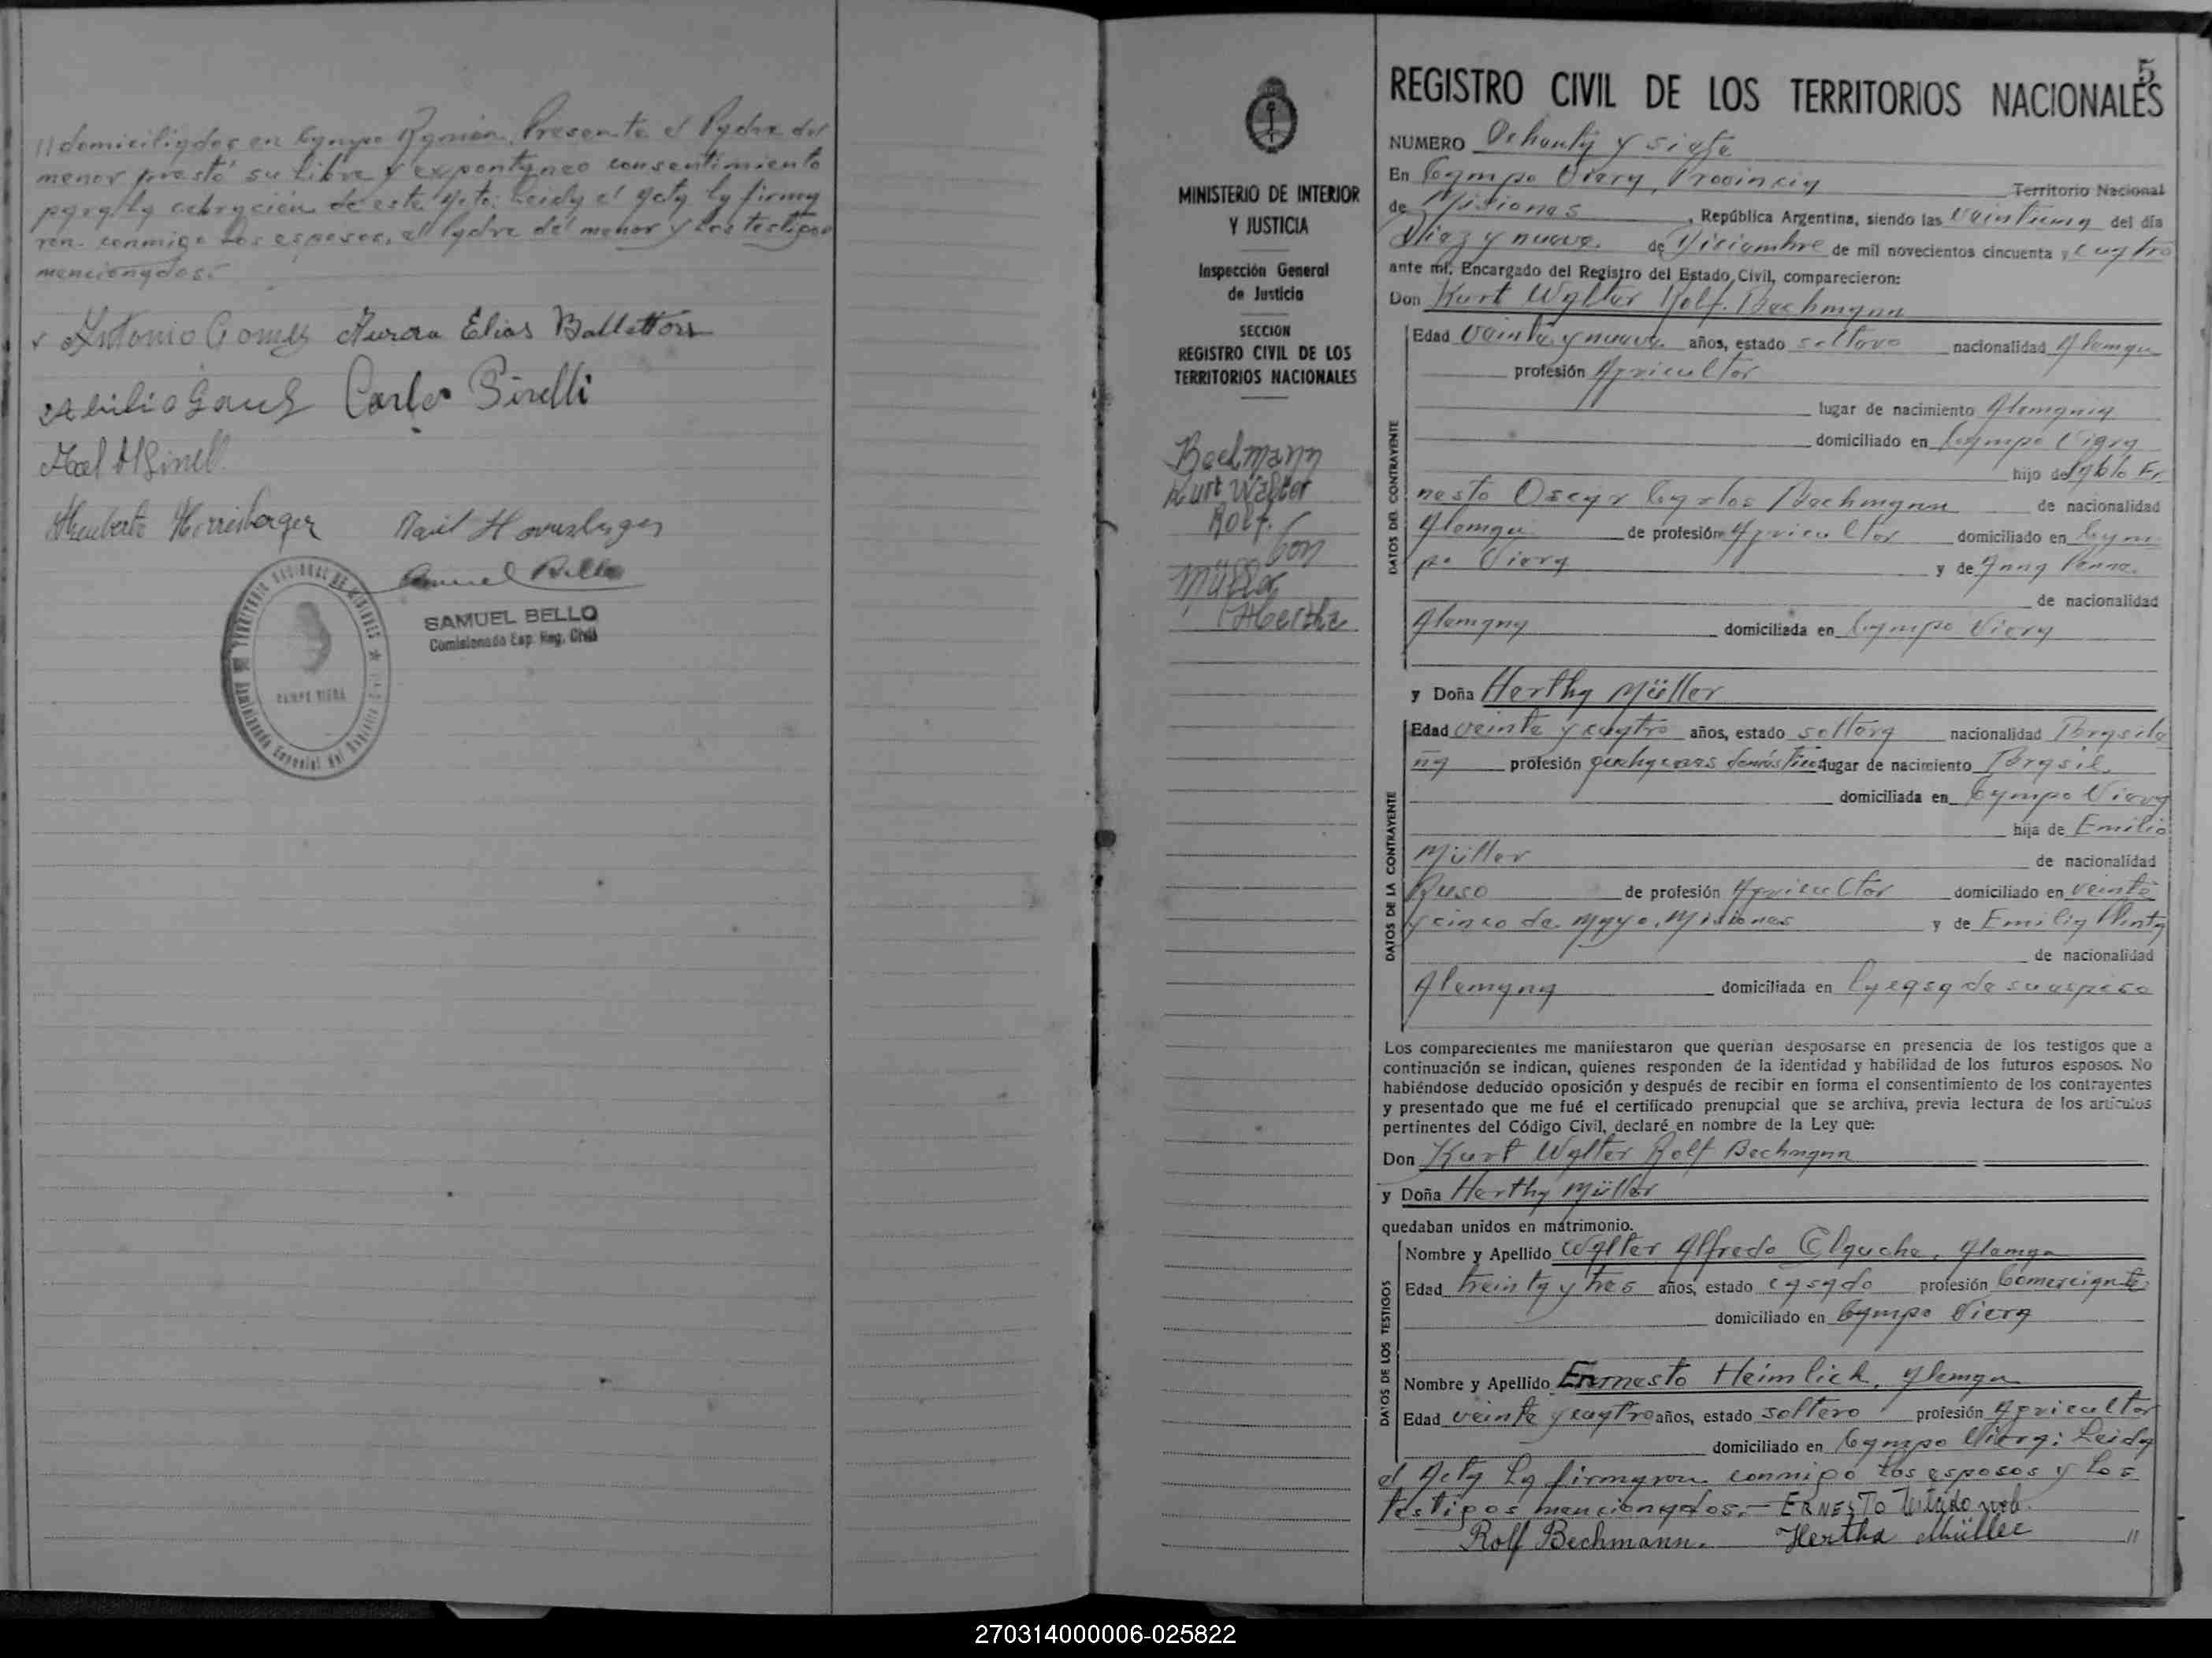 // domiciliados en Campo Ramón. Presente el Padre del
menor prestó su libre y expontaneo consentimiento
para la de este Acto: Leida el Acta la firma
ron conmigo los esposos, el Padre del menor y los testigos
mencionados.-
Antonio Gomez Aurora Elias Ballottori
Carlos Pirelli
Samuel Bello
SAMUEL BELLO
Comisionado Esp. Reg. Civil
TERRITORIO NACIONAL DE MISIONES
CAMPO VIERA
MINISTERIO DE INTERIOR
Y JUSTICIA
Inspección General
de Justicia
SECCION
REGISTRO CIVIL DE LOS
TERRITORIOS NACIONALES
Bechmann
Kurt Walter
Rolf.
Con
Müller
Hertha
5
REGISTRO CIVIL DE LOS TERRITORIOS NACIONALES
NUMERO Ochenta y siete
En Campo Viera, Provincia Territorio Nacional
de Misiones, República Argentina, siendo las veintiuna del día
Diez y nueve de Diciembre de mil novecientos cincuenta y cuatro
ante mí, Encargado del Registro del Estado Civil, comparecieron:
Don Kurt Walter Rolf. Bechmann
DATOS DEL CONTRAYENTE
Edad Veinte y nueve años, estado soltero nacionalidad Alemán
profesión Agricultor
lugar de nacimiento Alemania
domiciliado en Campo Viera
hijo de Pablo Er
nesto Oscar Carlos Bechmann de nacionalidad
Alemán de profesión Agricultor domiciliado en Cam
po Viera y de Anna
de nacionalidad
Alemana domiciliada en Campo Viera
y Doña Hertha Müller
DATOS DE LA CONTRAYENTE
Edad veinte y cuatro años, estado soltera nacionalidad Brasile
ña profesión quehaceres domésticos lugar de nacimiento Brasil
domiciliada en Campo Viera
hija de Emilio
Müller de nacionalidad
Ruso de profesión Agricultor domiciliado en veinte
y cinco de Mayo, Misiones y de Emilia
de nacionalidad
Alemana domiciliada en la casa de su esposo
Los comparecientes me manifestaron que querían desposarse en presencia de los testigos que a
continuación se indican, quienes responden de la identidad y habilidad de los futuros esposos. No
habiéndose deducido oposición y después de recibir en forma el consentimiento de los contrayentes
y presentado que me fué el certificado prenupcial que se archiva, previa lectura de los artículos
pertinentes del Código Civil, declaré en nombre de la Ley que:
Don Kurt Walter Rolf Bechmann
y Doña Hertha Müller
quedaban unidos en matrimonio.
DATOS DE LOS TESTIGOS
Nombre y Apellido Walter Alfredo, Alemán
Edad treinta y tres años, estado casado profesión Comerciante
domiciliado en Campo Viera
Nombre y Apellido Ernesto Heimlich, Alemán
Edad veinte y cuatro años, estado soltero profesión Agricultor
domiciliado en Campo Viera: Leida
el Acta la firmaron conmigo los esposos y los
testigos mencionados.- ERNESTO Testado
Rolf Bechmann. Hertha Müller //
270314000006-025822